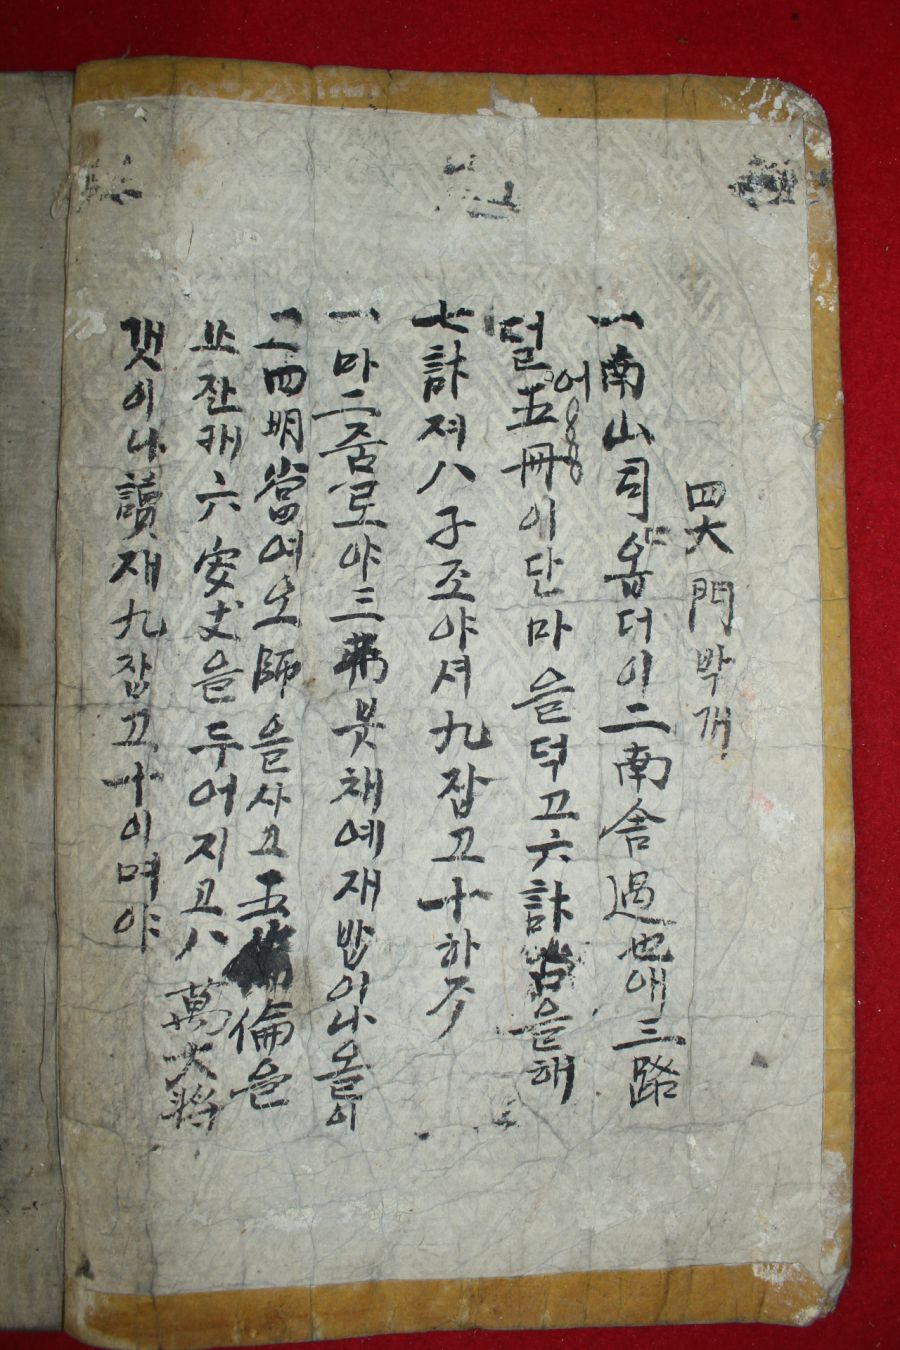 四大門박개
一南山司옴더이二南舍過也애三路
덜어五冊이단마을덕고六計을해
七計져八子조야셔九잡고十하주
一마二줌로야三弗붓채예재밥이나올이
그四明當여오師을사고五倫을
쏘잔캐六安丈을두어지고八萬大將
갯이나讀재九잡고十이며야